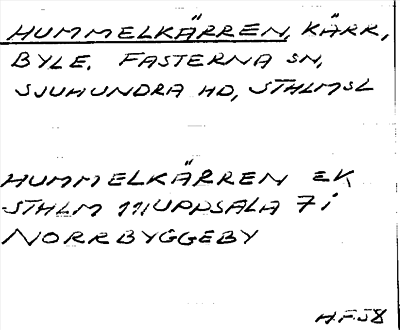 HUMMELKÄRREN, KÄRR,
BYLE. FASTERNA SN,
SJUHUNDRA HD, STHLMSL
HUMMELKÄRREN EK
STHLM 111 UPPSALA 7 i
NORRBYGGEBY
H.F.58